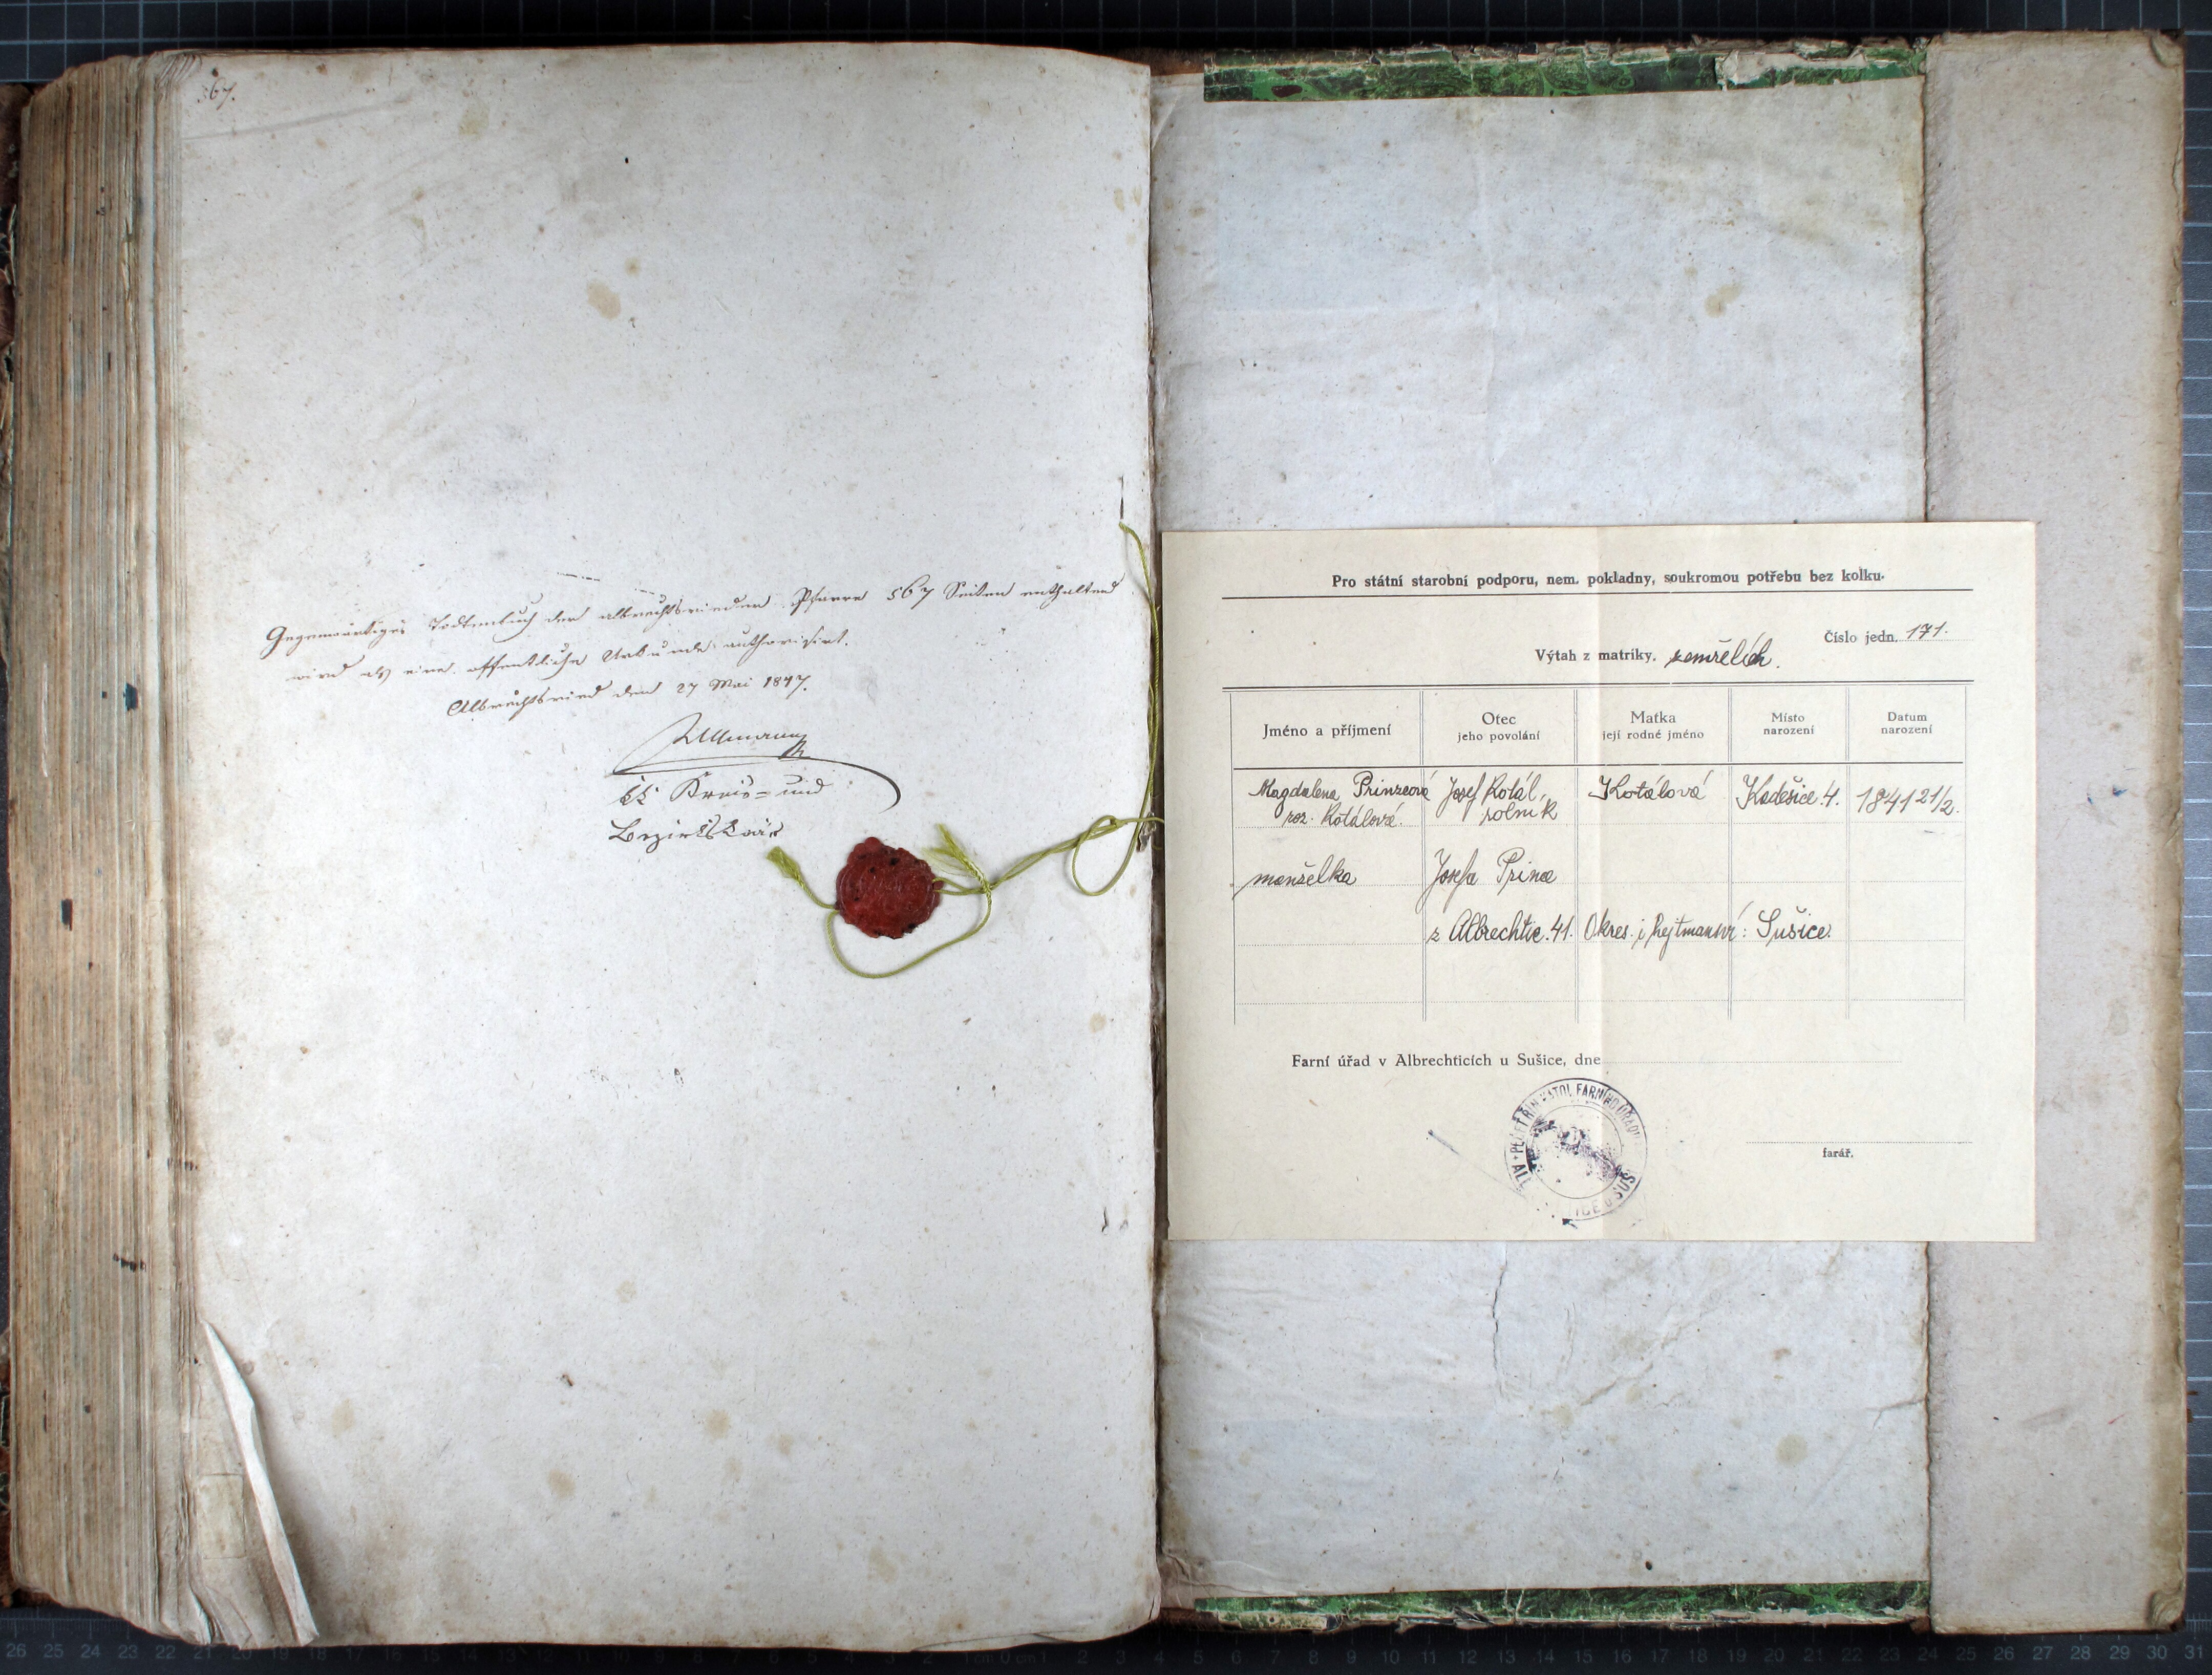 567.
Gegenwärtiges Todtenbuch der albrechtsrieder Pfarre 567 Seiten enthaltend
wird als eine offentliche Urkunde authorisirt.
Albrechtsried den 27 Mai 1847.
Ullmann
kk Kreis= und
Bezirkskoär
Pro státní starobní podporu, nem. pokladny, soukromou potřebu bez kolku.
Číslo jedn. 171.
Výtah z matriky. zemřelích.
Jméno a příjmení Otec jeho povolání Matka její rodné jméno Místo narození Datum narození
Magdalena Prinzeová Josef Kotál, Kotálová Kadešice 4. 1841 21/2.
roz. Kotálová. rolník
manželka Josefa Prince
z Albrechtic. 41. Okres. i hejtmanství: Sušice.
Farní úřad v Albrechticích u Sušice, dne
FARNÍHO ÚŘADU
farář.